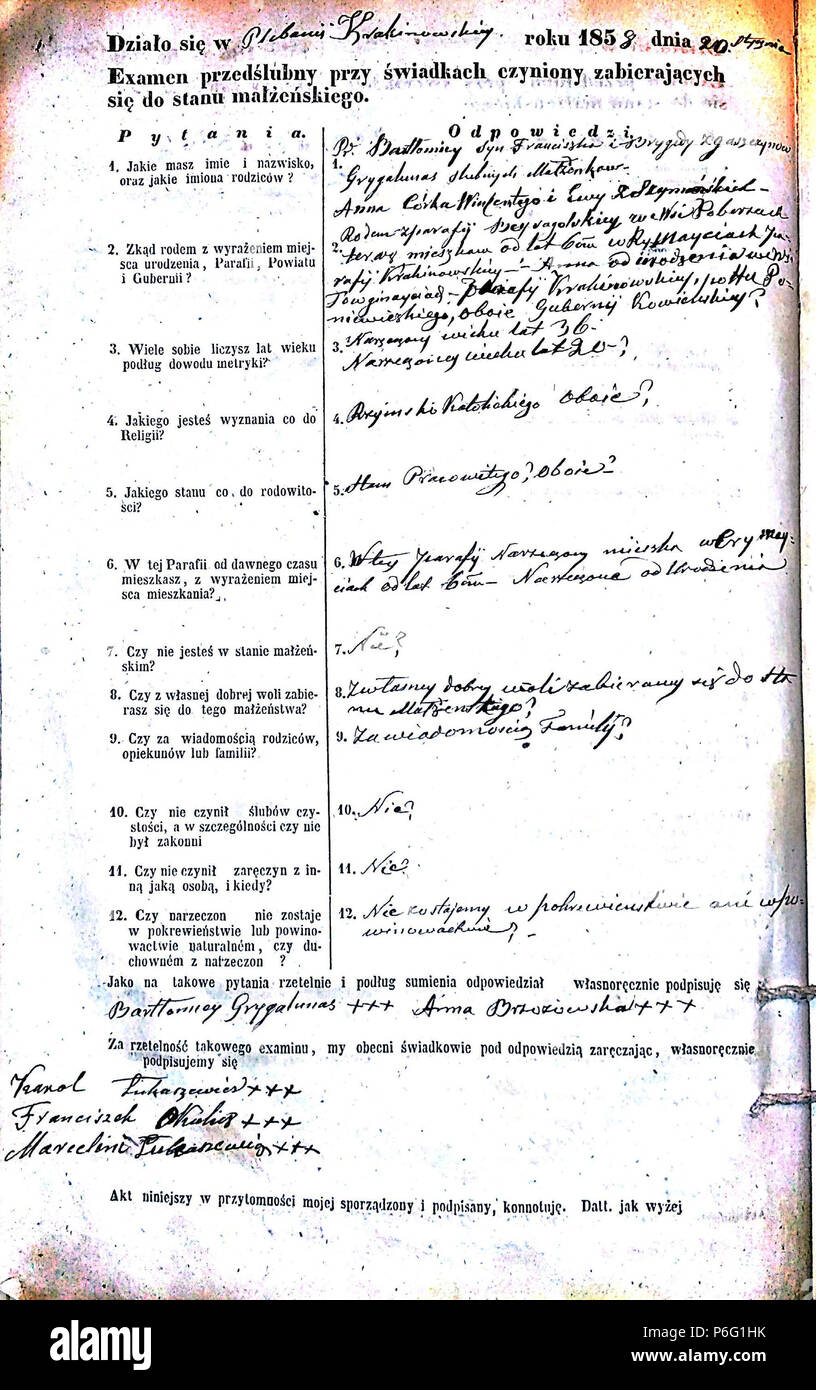 Działo się w Plebanij Krakinowskiey roku 1858 dnia 20 stycznia
Examen przedślubny przy świadkach czyniony zabierających
się do stanu małżeńskiego.
Pytania. Odpowiedzi
1. Jakie masz imie i nazwisko,
oraz jakie imiona rodziców?
1. Bartłomiey Syn Franciszka i Brygidy
Grygalunas slubnych Małżonkow
Anna Córka Wincentego i Ewy z Szymańskich
2. Zkąd rodem z wyrażeniem miej-
sca urodzenia, Parafii, Powiatu
i Gubernii?
Rodem z parafij we Wsi
2. teraz mieszkam od lat
rafij Krakinowskiey Anna od urodzenia we Wsi
Parafij Krakinowskiey, po
niewiezkiego, oboie Gubernij Kowieńskiey?
3. Wiele sobie liczysz lat wieku
podług dowodu metryki?
3. Narzeczony wieku lat 36
Narzeczoney wieku lat 20 ?
4. Jakiego jesteś wyznania co do
Religii?
4. Rzymsko Katolickiego oboie?
5. Jakiego stanu co do rodowito-
ści?
5. Stanu Pracowitego? oboie
6. W tej Parafii od dawnego czasu
mieszkasz, z wyrażeniem miej-
sca mieszkania?
6. W tey parafij Narzeczony mieszka w
ciach od lat Narzeczona od Urodzenia
7. Czy nie jesteś w stanie małżeń-
skim?
7. Nie?
8. Czy z własnej dobrej woli zabie-
rasz się do tego małżeństwa?
8. Z własney dobrey woli zabieramy się do sta
nu Małżenskiego?
9. Czy za wiadomością rodziców,
opiekunów lub familii?
9. Za wiadomoscią Familij?
10. Czy nie czynił ślubów czy-
stości, a w szczególności czy nie
był zakonni
10. Nie?
11. Czy nie czynił zaręczyn z in-
ną jaką osobą, i kiedy?
11. Nie?
12. Czy narzeczon nie zostaje
w pokrewieństwie lub powino-
wactwie naturalném, czy du-
chowném z narzeczon ?
12. Nie zostajemy w pokrewienstwie ani w po-
winowactwie?
Jako na takowe pytania rzetelnie i podług sumienia odpowiedział własnoręcznie podpisuję się
Bartłomiey Grygalunas +++ Anna Brzozowska +++
Za rzetelność takowego examinu, my obecni świadkowie pod odpowiedzią zaręczając, własnoręcznie
podpisujemy się
Karol Łukaszewicz +++
Franciszek +++
Marcelini Łukaszewicz +++
Akt niniejszy w przytomności mojej sporządzony i podpisany, konnotuję. Datt. jak wyżej
alamy
Image ID: P6G1HK
www.alamy.com